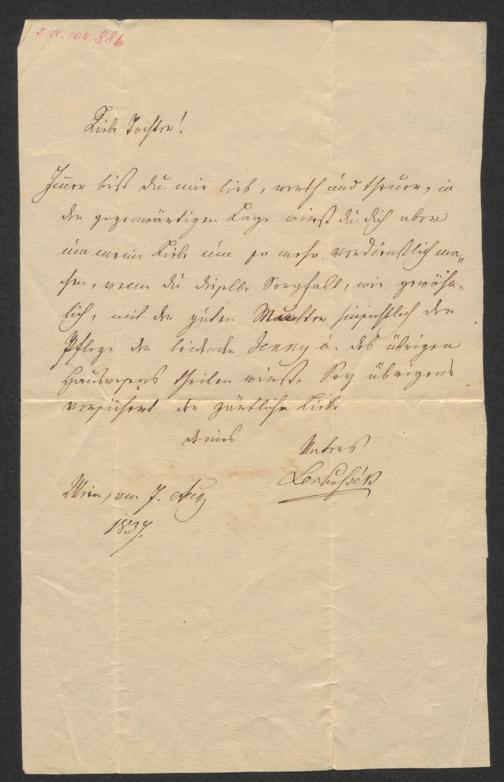 Liebe Tochter!
Immer bist du mir lieb, werth und theuer, in
der gegenwärtigen Lage wirst du dich aber
um meine Liebe um so mehr verdienstlich ma=
chen, wenn du dieselbe Sorgfalt, wie gewöhn=
lich, mit der guten Mutter hinsichtlich der
Pflege der leidenden Jenny u. des übrigen
Hauswesens theilen wirst. Sey übrigens
versichert der zärtlichen Liebe
deines
Vaters
Wien, am 7. Aug
1837.